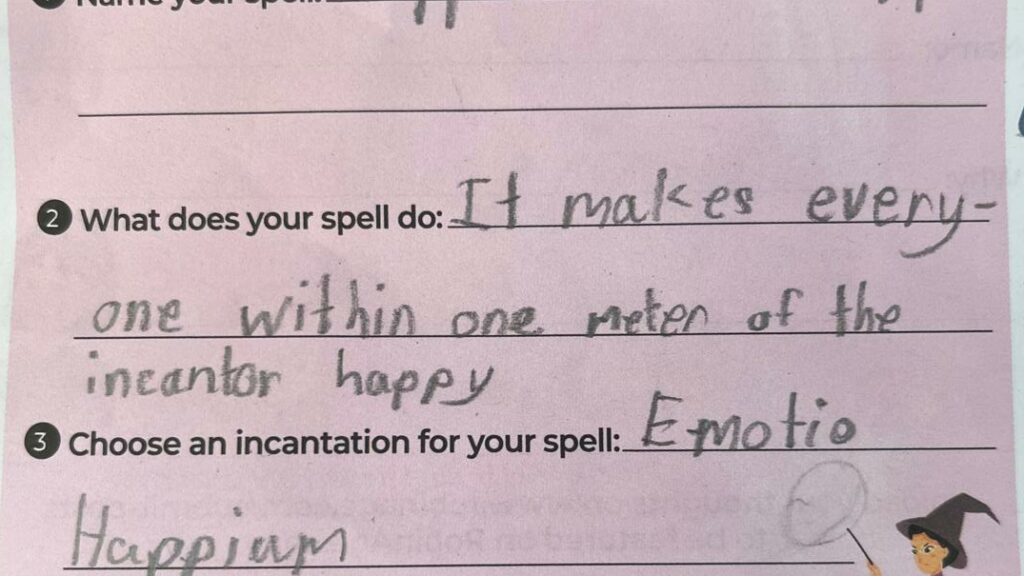 1 Name your spell:
2 What does your spell do: It makes every-
one within one meter of the
incantor happy
3 Choose an incantation for your spell: Emotio
Happium